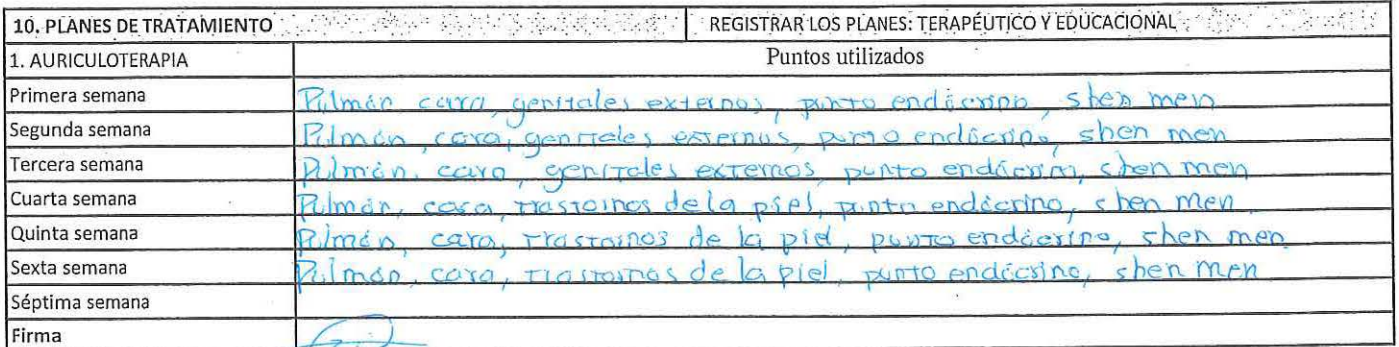 10. PLANES DE TRATAMIENTO REGISTRAR LOS PLANES: TERAPÉUTICO Y EDUCACIONAL
1. AURICULOTERAPIA Puntos utilizados
Primera semana Pulmón cara, genitales externos, punto endócrino, shen men
Segunda semana Pulmón, cara, genitales externos, punto endócrino, shen men
Tercera semana Pulmón, cara, genitales externos, punto endócrino, shen men
Cuarta semana Pulmón, cara, trastornos de la piel, punto endócrino, shen men.
Quinta semana Pulmón, cara, trastornos de la piel, punto endócrino, shen men
Sexta semana Pulmón, cara, trastornos de la piel, punto endócrino, shen men
Séptima semana
Firma